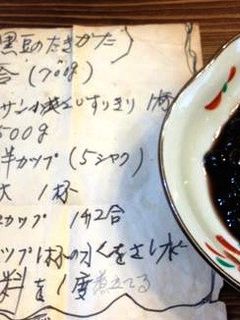 黒豆のたきかた)
合(200g)
サン小サジすりきり1杯
500g
半カップ(5シャク)
大1杯
カップ1升2合
ップ1杯の水くをさし水
料を1度煮立てる